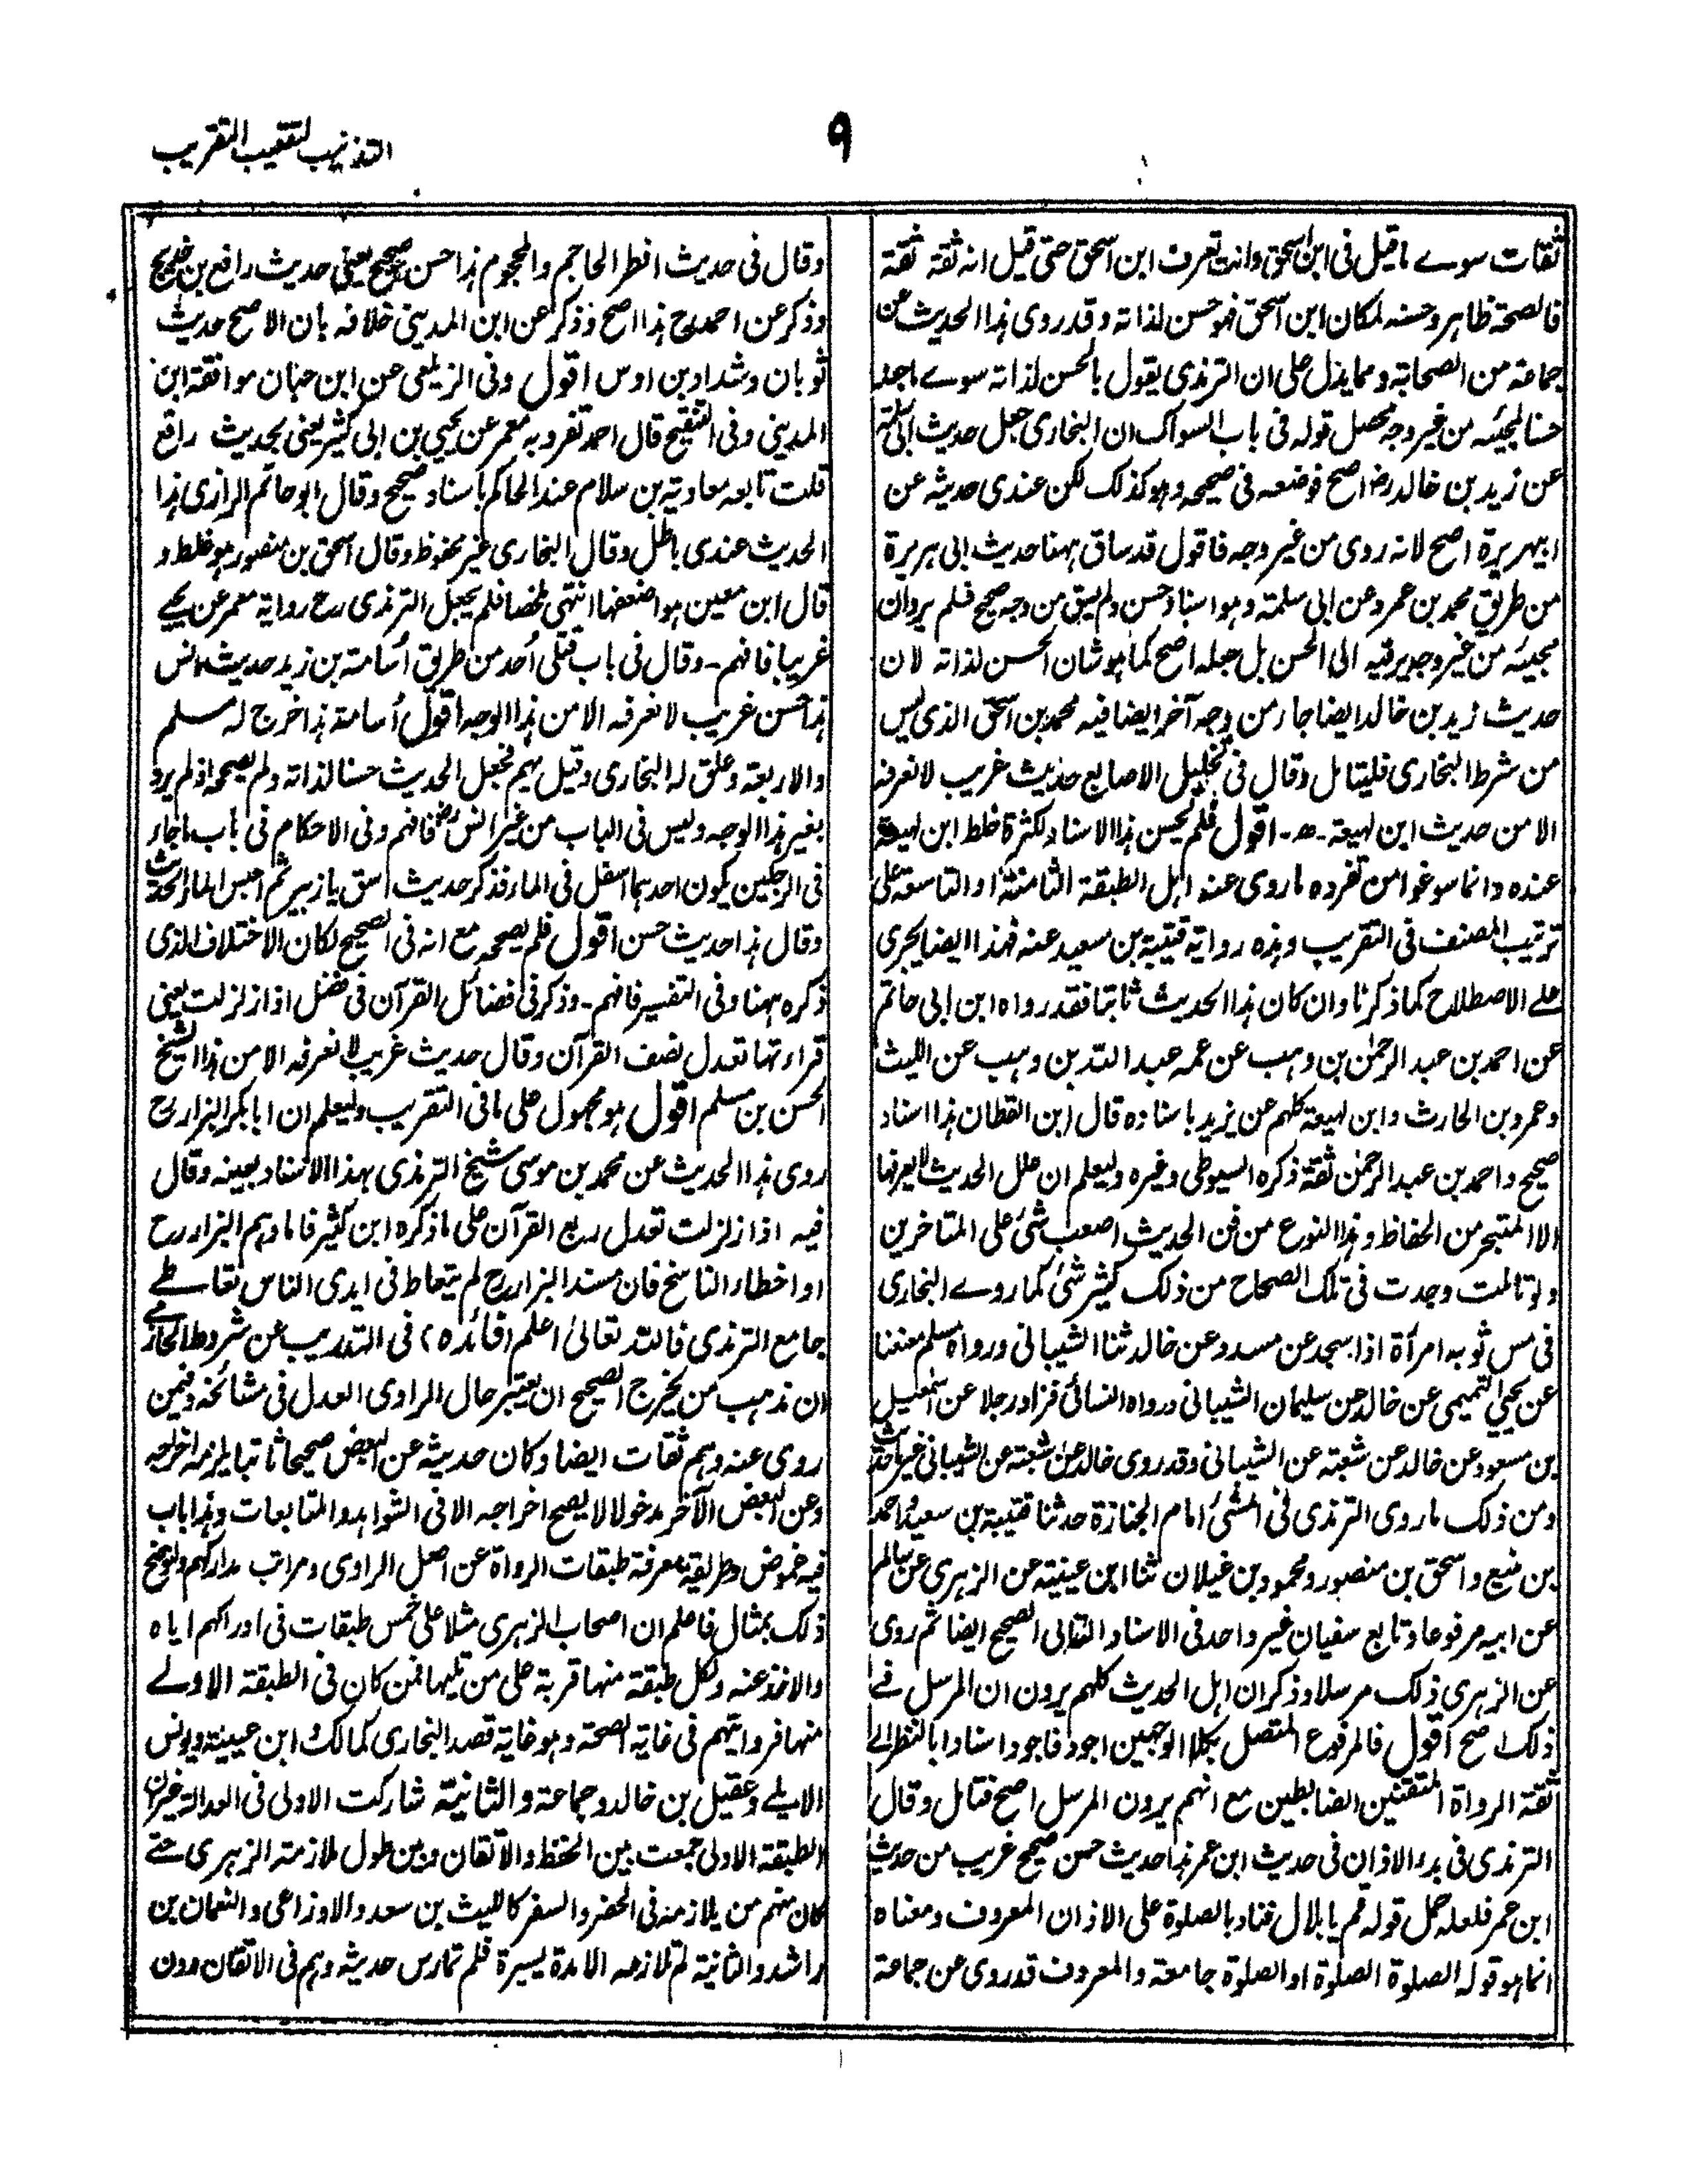 التذنيب لتعقيب التقريب
٩
ثقات سوے ما قيل فى ابن اسحٰق وانت تعرف ابن اسحٰق حتى قيل انه ثقة ثقة
فالصحة ظاهر وحسنه لمكان ابن اسحٰق فهو حسن لذاته وقد روى هذا الحديث عن
جماعة من الصحابة ومما يدل على ان الترمذى يقول بالحسن لذاته سوے اجد
حسنا لمجيئه من غير وجه محصل قوله فى باب السواك ان البخارى جعل حديث ابى سلمة
عن زيد بن خالد رضـ اصح فوضعه فى صحيحه وهو كذلك لكن عندى حديثه عن
ابيهريرة اصح لانه روى من غير وجه فاقول قد ساق ههنا حديث ابى هريرة
من طريق محمد بن عمرو عن ابى سلمة وهو اسناد حسن ولم يبق من وجه صحيح فلم يرد ان
مجيئه من غير وجه يرقيه الى الحسن بل جعله اصح كما هو شان الحسن لذاته لان
حديث زيد بن خالد ايضا جاء من وجه آخر ايضا فيه محمد بن اسحٰق الذى ليس
من شرط البخارى فليتامل وقال فى تخليل الاصابع حديث غريب لا نعرفه
الا من حديث ابن لهيعة -ه- اقول فلم يحسن هذا الاسناد لكثرة غلط ابن لهيعة
عنده وانما سوغوا من تفرده ما روى عنه اهل الطبقة الثامنة او التاسعة على
ترتيب المصنف فى التقريب وهذه رواية قتيبة بن سعيد عنه فهذا ايضا يجرى
علے الاصطلاح كما ذكرنا وان كان هذا الحديث ثابتا فقد رواه ابن ابى حاتم
عن احمد بن عبد الرحمٰن بن وهب عن عمه عبد الله بن وهب عن الليث
وعمرو بن الحارث وابن لهيعة كلهم عن يزيد باسناده قال ابن القطان هذا اسناد
صحيح واحمد بن عبد الرحمٰن ثقة ذكره السيوطى وغيره وليعلم ان علل الحديث لا يعرفها
الا المتبحر من الحفاظ وهذا النوع من فن الحديث اصعب شئ على المتاخرين
ولو تاملت وجدت فى تلك الصحاح من ذلك كثير شئ كما روے البخارى
فى مس ثوبه امرأة اذا سجد عن مسدد عن خالد ثنا الشيبانى ورواه مسلم معنعنا
عن يحيى التميمى عن خالد عن سليمان الشيبانى ورواه النسائى فزاد رجلا عن اسمٰعيل
بن مسعود عن خالد عن شعبة عن الشيبانى وقد روى خالد عن شعبة عن الشيبانى غير حديث
ومن ذلك ما روى الترمذى فى المشئ امام الجنازة حدثنا قتيبة بن سعيد واحمد
بن منيع واسحق بن منصور ومحمود بن غيلان ثنا ابن عيينة عن الزهرى عن سالم
عن ابيه مرفوعا وتابع سفيان غير واحد فى الاسناد التعالى الصحيح ايضا ثم روى
عن الزهرى ذلك مرسلا وذكر ان اهل الحديث كلهم يرون ان المرسل فے
ذلك اصح اقول فالمرفوع المتصل بكلا الوجهين اجود فاجود اسنادا بالنظر الے
ثقة الرواة المتقنين الضابطين مع انهم يرون المرسل اصح فتامل وقال
الترمذى فى بدء الاذان فى حديث ابن عمر هذا حديث حسن صحيح غريب من حديث
ابن عمر فلعله حمل قوله قم يا بلال فناد بالصلوة على الاذان المعروف ومعناه
انما هو قوله الصلوة الصلوة او الصلوة جامعة والمعروف قد روى عن جماعة
وقال فى حديث افطر الحاجم والمحجوم هذا حسن صحيح يعنى حديث رافع بن خديج
وذكر عن احمد رح هذا اصح وذكر عن ابن المدينى خلافه بان الاصح حديث
ثوبان وشداد بن اوس اقول وفى الزيلعى عن ابن حبان موافقة ابن
المدينى وفى التنقيح قال احمد تفرد به معمر عن يحيى بن ابى كثير يعنى بحديث رافع
قلت تابعه معاوية بن سلام عند الحاكم باسناد صحيح وقال ابو حاتم الرازى هذا
الحديث عندى باطل وقال البخارى غير محفوظ وقال اسحٰق بن منصور هو غلط و
قال ابن معين هو اضعفها انتهى ملخصا فلم يجعل الترمذى رح رواية معمر عن يحيے
غريبا فافهم - وقال فى باب قتلى أحد من طريق أسامة بن زيد حديث انس
هذا حسن غريب لا نعرفه الا من هذا الوجه اقول أسامة هذا خرج له مسلم
والاربعة وعلق له البخارى وقيل يهم فجعل الحديث حسنا لذاته ولم يصححه اذ لم يرد
بغير هذا الوجه وليس فى الباب من غير انس رضـ فافهم وفى الاحكام فى باب ما جاء
فى الرجلين يكون احدهما اسفل فى الماء فذكر حديث اسق يا زبير ثم احبس الماء الحديث
وقال هذا حديث حسن اقول فلم يصححه مع انه فى الصحيح لكان الاختلاف الذى
ذكره ههنا وفى التفسير فافهم - وذكر فى فضائل القرآن فى فضل اذا زلزلت يعنى
قراءتها تعدل نصف القرآن وقال حديث غريب لا نعرفه الا من هذا الشيخ
الحسن بن مسلم اقول هو مجهول على ما فى التقريب وليعلم ان ابا بكر البزار رح
روى هذا الحديث عن محمد بن موسى شيخ الترمذى بهذا الاسناد بعينه وقال
فيه اذا زلزلت تعدل ربع القرآن على ما ذكره ابن كثير فاما وهم البزار رح
او اخطاء الناسخ فان مسند البزار رح لم يتعاط فى ايدى الناس تعاطے
جامع الترمذى فالله تعالىٰ اعلم (فائده) فى التدريب عن شروط الحازمے
ان مذهب من يخرج الصحيح ان يعتبر حال الراوى العدل فى مشائخه وفيمن
روى عنه وهم ثقات ايضا وكان حديثه عن البعض صحيحا ثابتا يلزمه اخراجه
وعن البعض الآخر مدخولا لا يصح اخراجه الا فى الشواهد والمتابعات وهذا باب
فيه غموض وطريقة معرفة طبقات الرواة عن اصل الراوى ومراتب مداركهم ولنوضح
ذلك بمثال فاعلم ان اصحاب الزهرى مثلا على خمس طبقات فى ادراكهم اياه
والاخذ عنه ولكل طبقة منها قربة على من تليها فمن كان فى الطبقة الاولے
منها فروايتهم فى غاية الصحة وهو غاية قصد البخارى كمالك وابن عيينة ويونس
الايلے وعقيل بن خالد وجماعة والثانية شاركت الاولى فى العدالة غير ان
الطبقة الاولى جمعت بين الحفظ والاتقان وبين طول ملازمة الزهرى حتے
كان منهم من يلازمه فى الحضر والسفر كالليث بن سعد والاوزاعى والنعمان بن
راشد والثانية لم تلازمه الا مدة يسيرة فلم تمارس حديثه وهم فى الاتقان دون